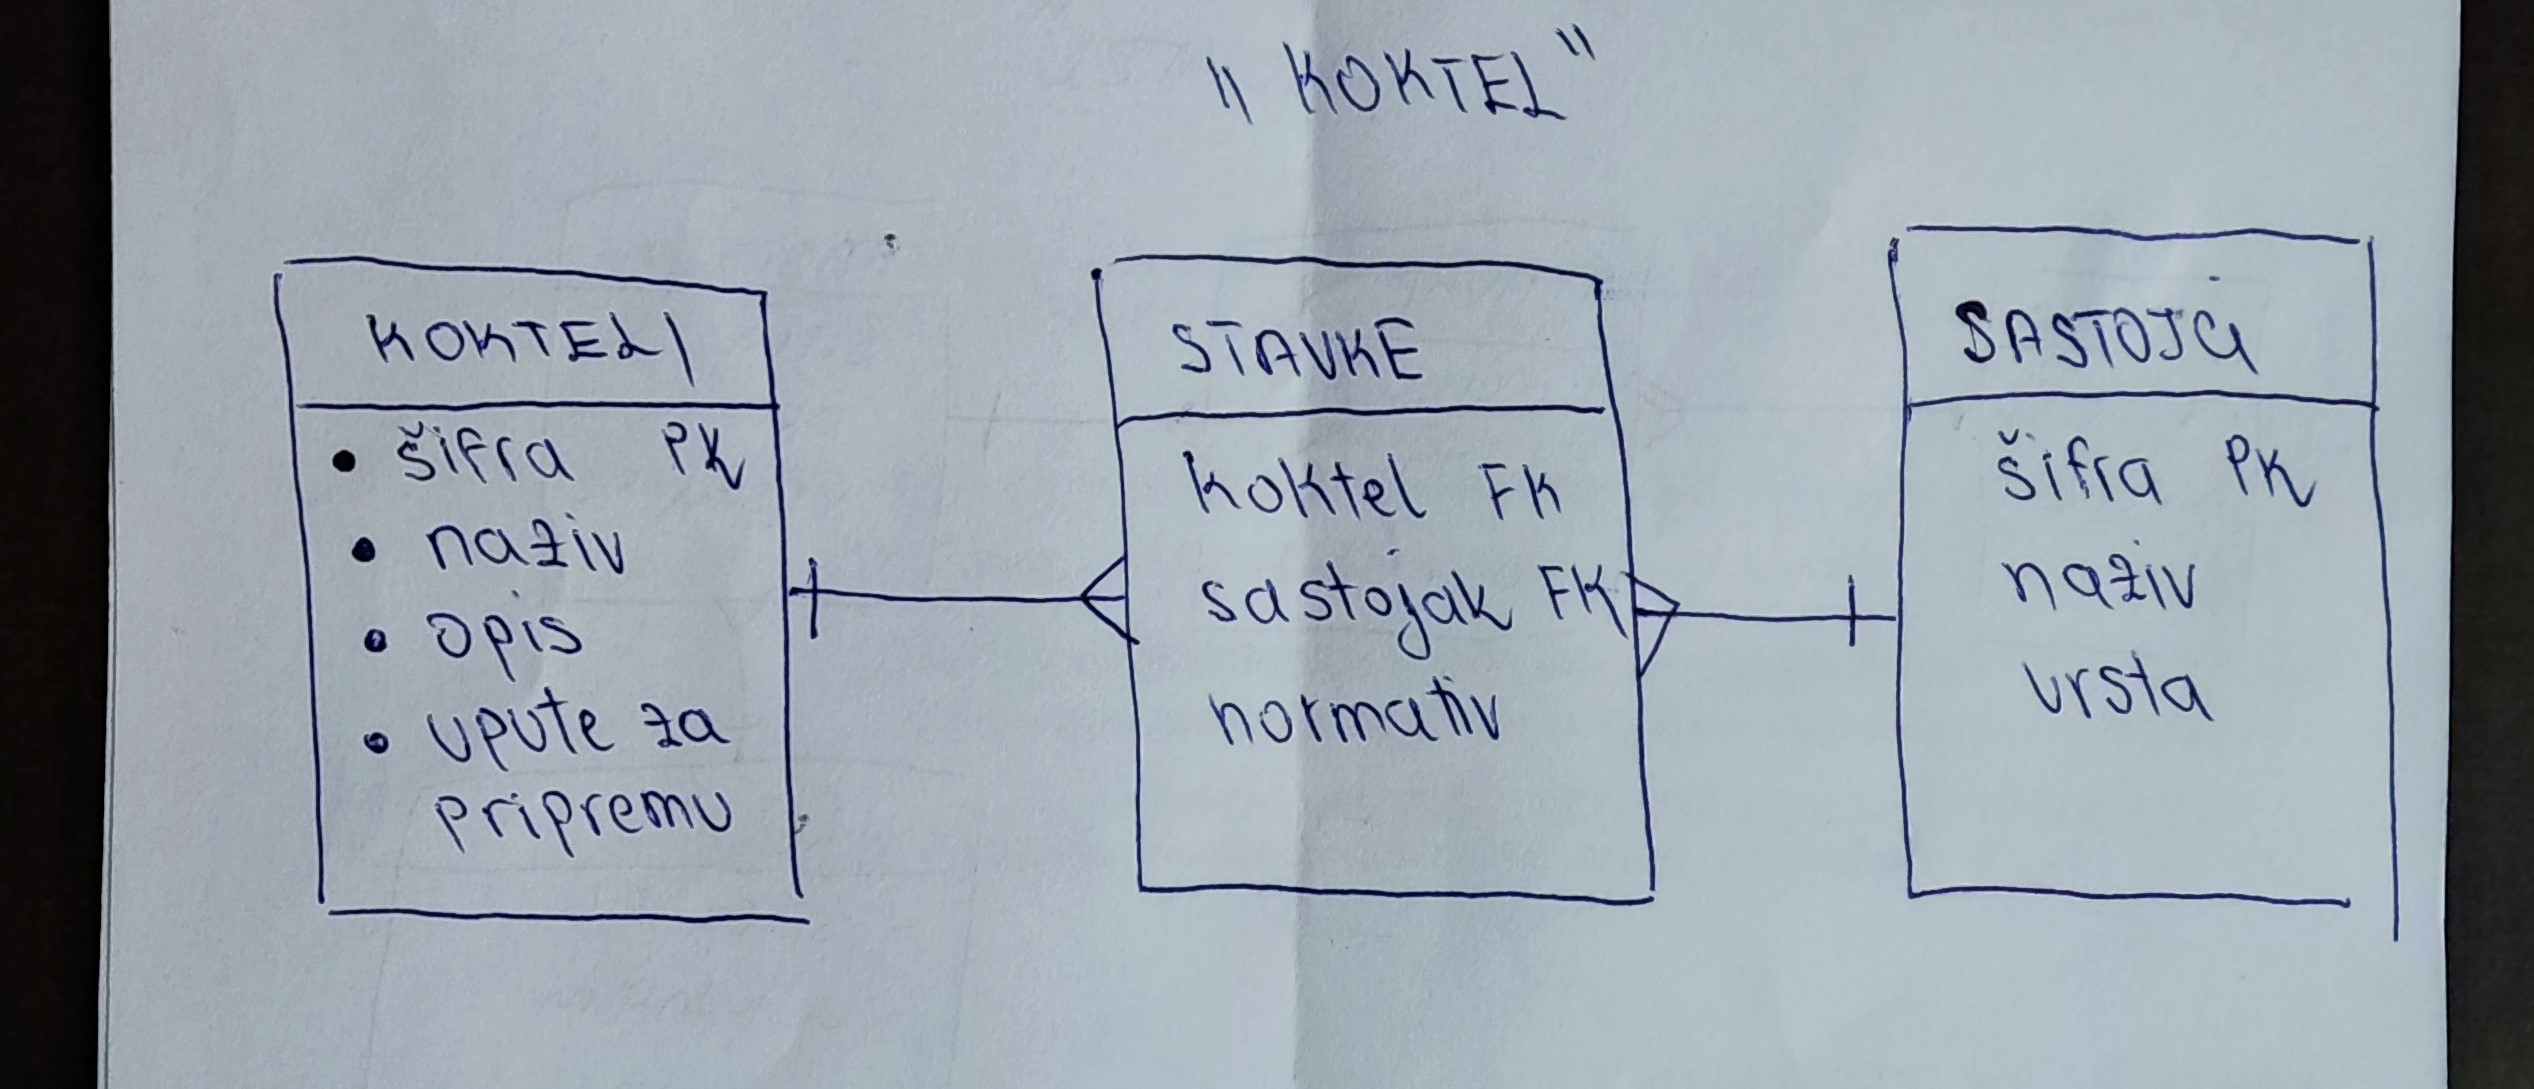 "KOKTEL"
KOKTELI
• šifra PK
• naziv
• opis
• upute za
pripremu
STAVKE
koktel FK
sastojak FK
normativ
SASTOJCI
šifra PK
naziv
vrsta